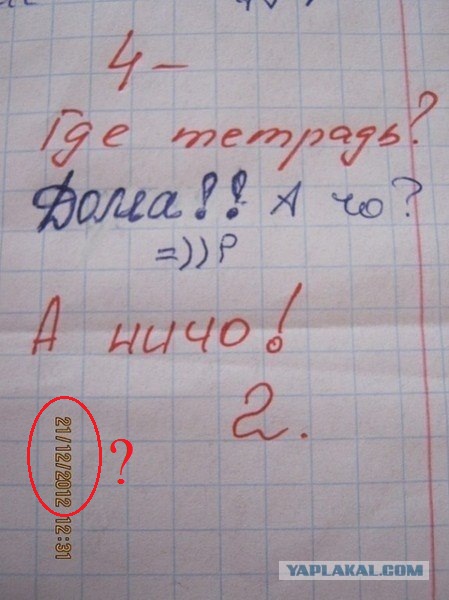 4-
Где тетрадь?
Дома!! А чо?
=))P
А ничо!
2.
21/12/2012 12:31
?
YAPLAKAL.COM